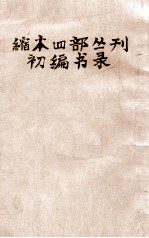 縮本四部丛刊
初编书录